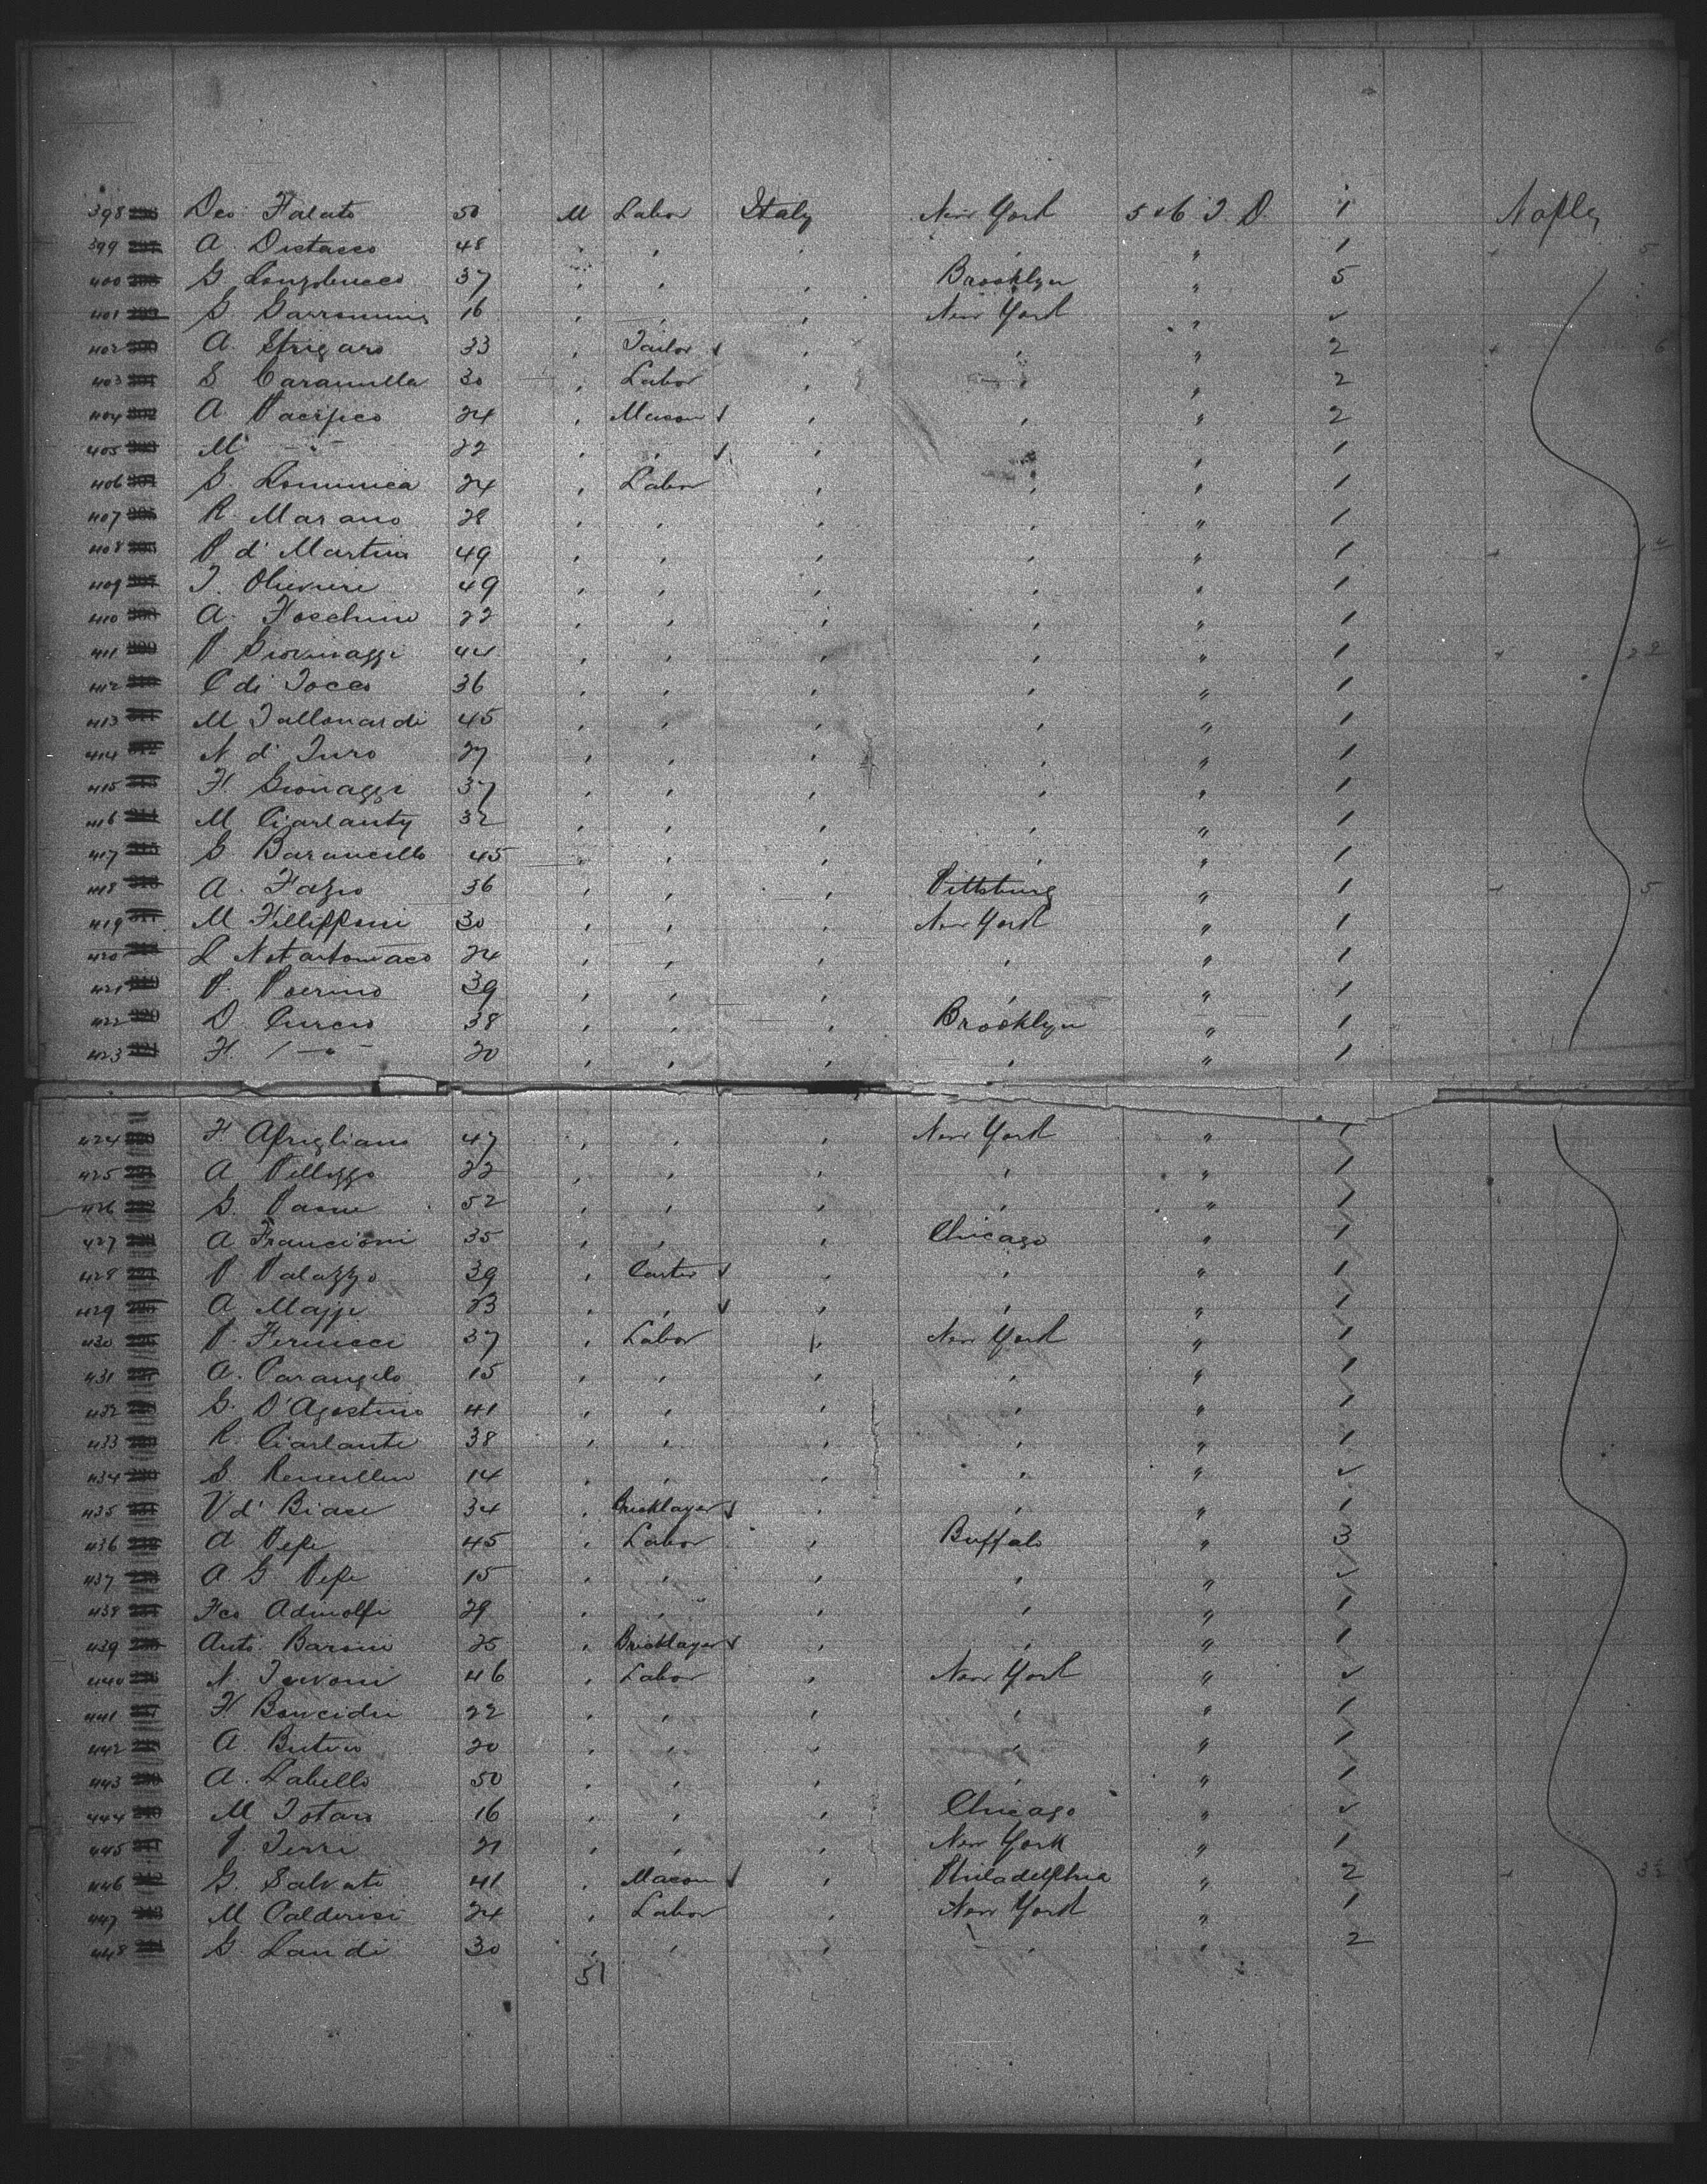 398 Deo Falato 50 M Labor Italy New York 5 & 6 T. D. 1 Naples
399 A. Distacco 48 , , , , " 1 5
400 G. 37 , , , Brooklyn " 5
401 G. 16 , , , New York "
402 A. Spigaro 33 , Tailor , , " 2 6
403 S. Caramella 30 , Labor , " 2
404 A. Pacifico 24 , Mason , , " 2
405 M — " — 22 , , , " 1
406 G. 24 , Labor , , " 1
407 R. Marano 28 , , , , " 1
408 P. d' Martin 49 , , , , " 1
409 T. Olievieri 49 , , , , " 1
410 A. Foschino 22 , , , , " 1
411 P. Giovinaggi 44 , , , , " 1 22
412 C di Tocco 36 , , , , " 1
413 M Tallonardi 45 , , , , " 1
414 N. d' Iuro 27 , , , , " 1
415 F. Gionaggi 37 , , , , " 1
416 M Ciarlanty 32 , , , , " 1
417 G Barancello 45 , , , , " 1
418 A. Fazio 36 , , , Pittsburg " 1 5
419 M Fillipponi 30 , , , New York " 1
420 L Notartomaco 24 , , , , " 1
421 P. 39 , , , , " 1
422 D Curcio 38 , , , Brooklyn " 1
423 F. — " — 20 , , , , " 1
424 F Aprigliano 47 , , , New York " 1
425 A Pellizzo 22 , , , , " 1
426 G. 52 , , , , " 1
427 A Francioni 35 , , , Chicago " 1
428 P Palazzo 39 , Carter , , " 1
429 A. 23 , , , , " 1
430 P. Ferrucci 37 , Labor , New York " 1
431 A. Carangelo 15 , , , , " 1
432 G. D'Agostino 41 , , , , " 1
433 R. Ciarlante 38 , , , , " 1
434 S. 14 , , , , "
435 V d' Biace 34 , Bricklayer , , " 1
436 A Pepe 45 , Labor , Buffalo " 3
437 A. G Pepe 15 , , , , "
438 Fco Adinolfi 29 , , , , " 1
439 Anto. Baroni 25 , Bricklayer , , " 1
440 N. 46 , Labor , New York "
441 F 22 , , , , " 1
442 A. 20 , , , , " 1
443 A. Labello 50 , , , , " 1
444 M Totaro 16 , , , Chicago "
445 P. Terri 21 , , , New York " 1
446 G. Salvati 41 , Mason , Philadelphia " 2
447 M Calderisi 24 , Labor , New York " 1
448 G. Landi 30 , , , , " 2
51